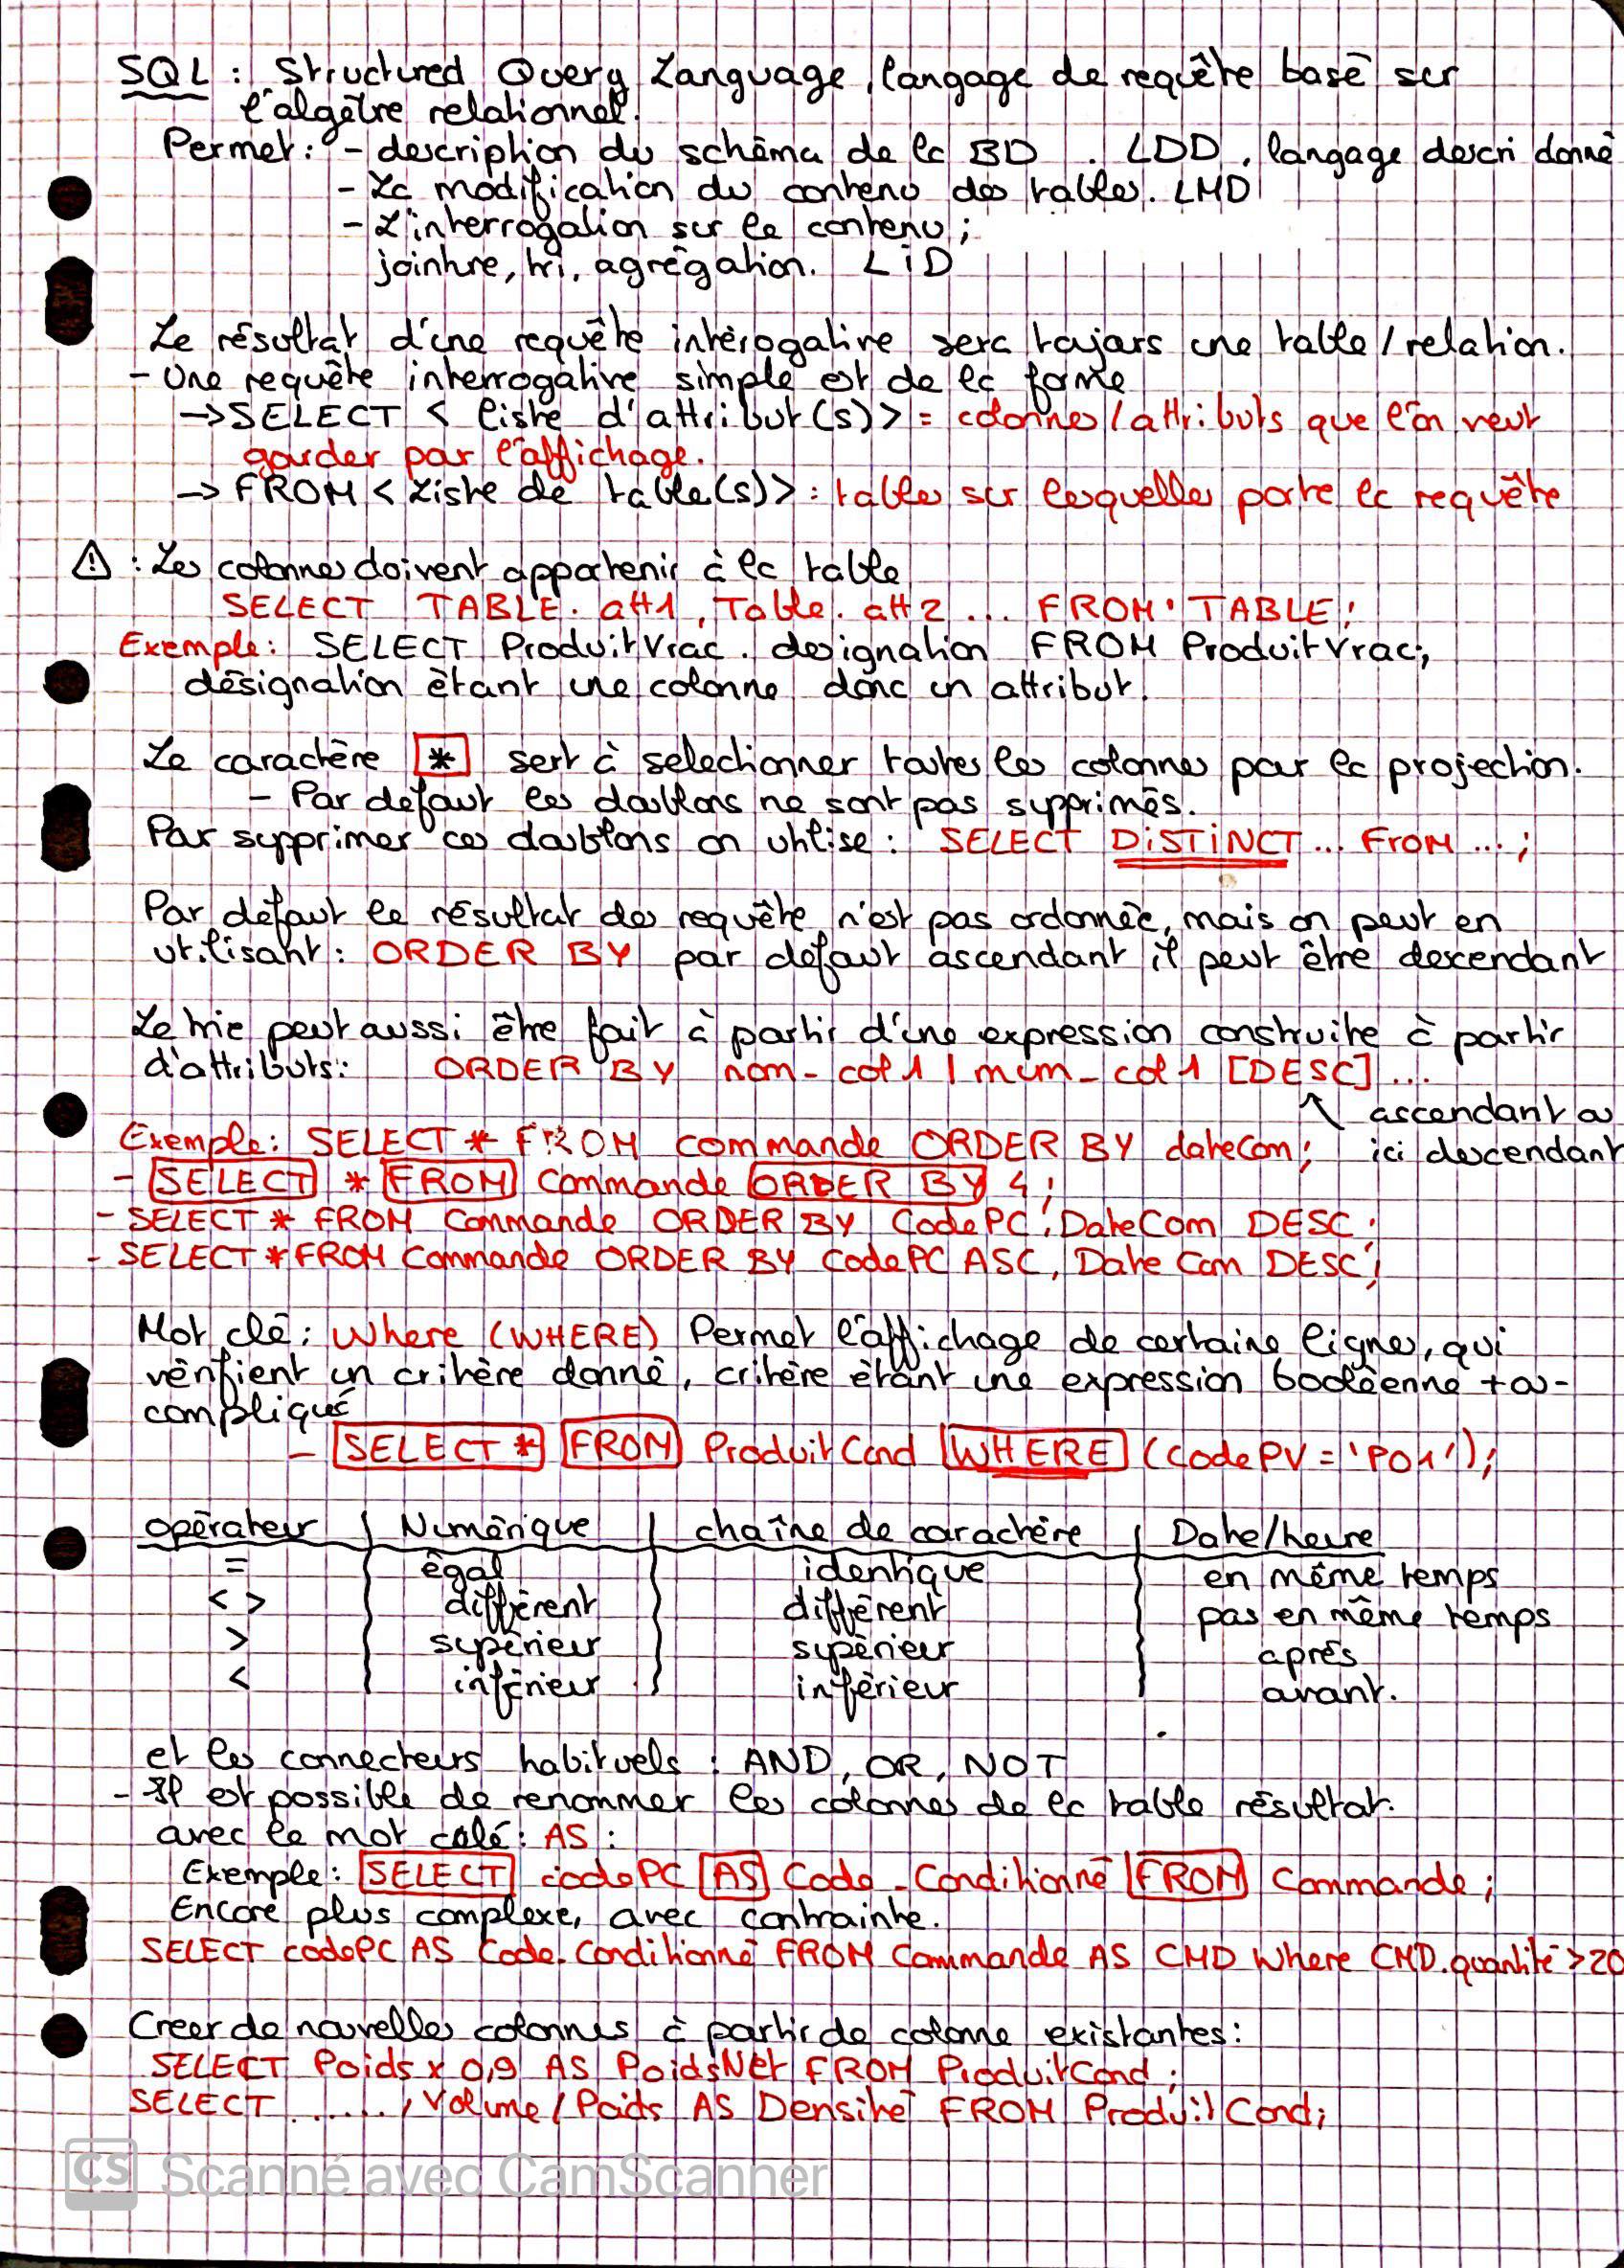 SQL : Structured Query Language, langage de requête basé sur
l'algèbre relationnel.
Permet : - description du schéma de la BD . LDD, langage descri donné
- La modification du contenu des tables. LMD
- L'interrogation sur le contenu ;
jointure, tri, agrégation. LiD
Le résultat d'une requête intérogative sera toujours une table / relation.
- Une requête interrogative simple est de la forme
→ SELECT < liste d'attribut(s) > = colonnes / attributs que l'on veut
garder pour l'affichage.
→ FROM < Liste de table(s) > : tables sur lesquelles porte la requête
⚠ : Les colonnes doivent appartenir à la table
SELECT TABLE. att1, Table. att2 ... FROM TABLE ;
Exemple : SELECT ProduitVrac. designation FROM ProduitVrac ;
désignation étant une colonne donc un attribut.
Le caractère * sert à selectionner toutes les colonnes pour la projection.
- Par défaut les doublons ne sont pas supprimés.
Pour supprimer ces doublons on utilise : SELECT DiSTiNCT ... FroM ... ;
Par défaut le résultat des requête n'est pas ordonnée, mais on peut en
utilisant : ORDER BY par défaut ascendant il peut être descendant
Le trie peut aussi être fait à partir d'une expression construite à partir
d'attributs : ORDER BY nom-col1 | num-col1 [DESC] ...
↑ ascendant ou
Exemple : SELECT * FROM commande ORDER BY dateCom ; ici descendant
- SELECT * FROM Commande ORDER BY 4 ;
- SELECT * FROM Commande ORDER BY CodePC, DateCom DESC ;
- SELECT * FROM Commande ORDER BY CodePC ASC, Date Com DESC ;
Mot clé : Where (WHERE) Permet l'affichage de certaine lignes, qui
vérifient un critère donné, critère étant une expression booléenne + ou -
compliqué
- SELECT * FROM ProduitCond WHERE (codePV = 'P01') ;
opérateur | Numérique | chaîne de caractère | Date/heure
= égal identique en même temps
< > différent différent pas en même temps
> supérieur supérieur après
< inférieur inférieur avant.
et les connecteurs habituels : AND, OR, NOT
- Il est possible de renommer les colonnes de la table résultat.
avec le mot clé : AS :
Exemple : SELECT codePC AS Code_Conditionné FROM Commande ;
Encore plus complexe, avec contrainte.
SELECT codePC AS Code.Conditionné FROM Commande AS CMD Where CMD.quantité > 20
Creer de nouvelles colonnes à partir de colonne existantes :
SELECT Poids x 0,9 AS PoidsNet FROM ProduitCond ;
SELECT ......, Volume / Poids AS Densité FROM ProduitCond ;
CS Scanné avec CamScanner